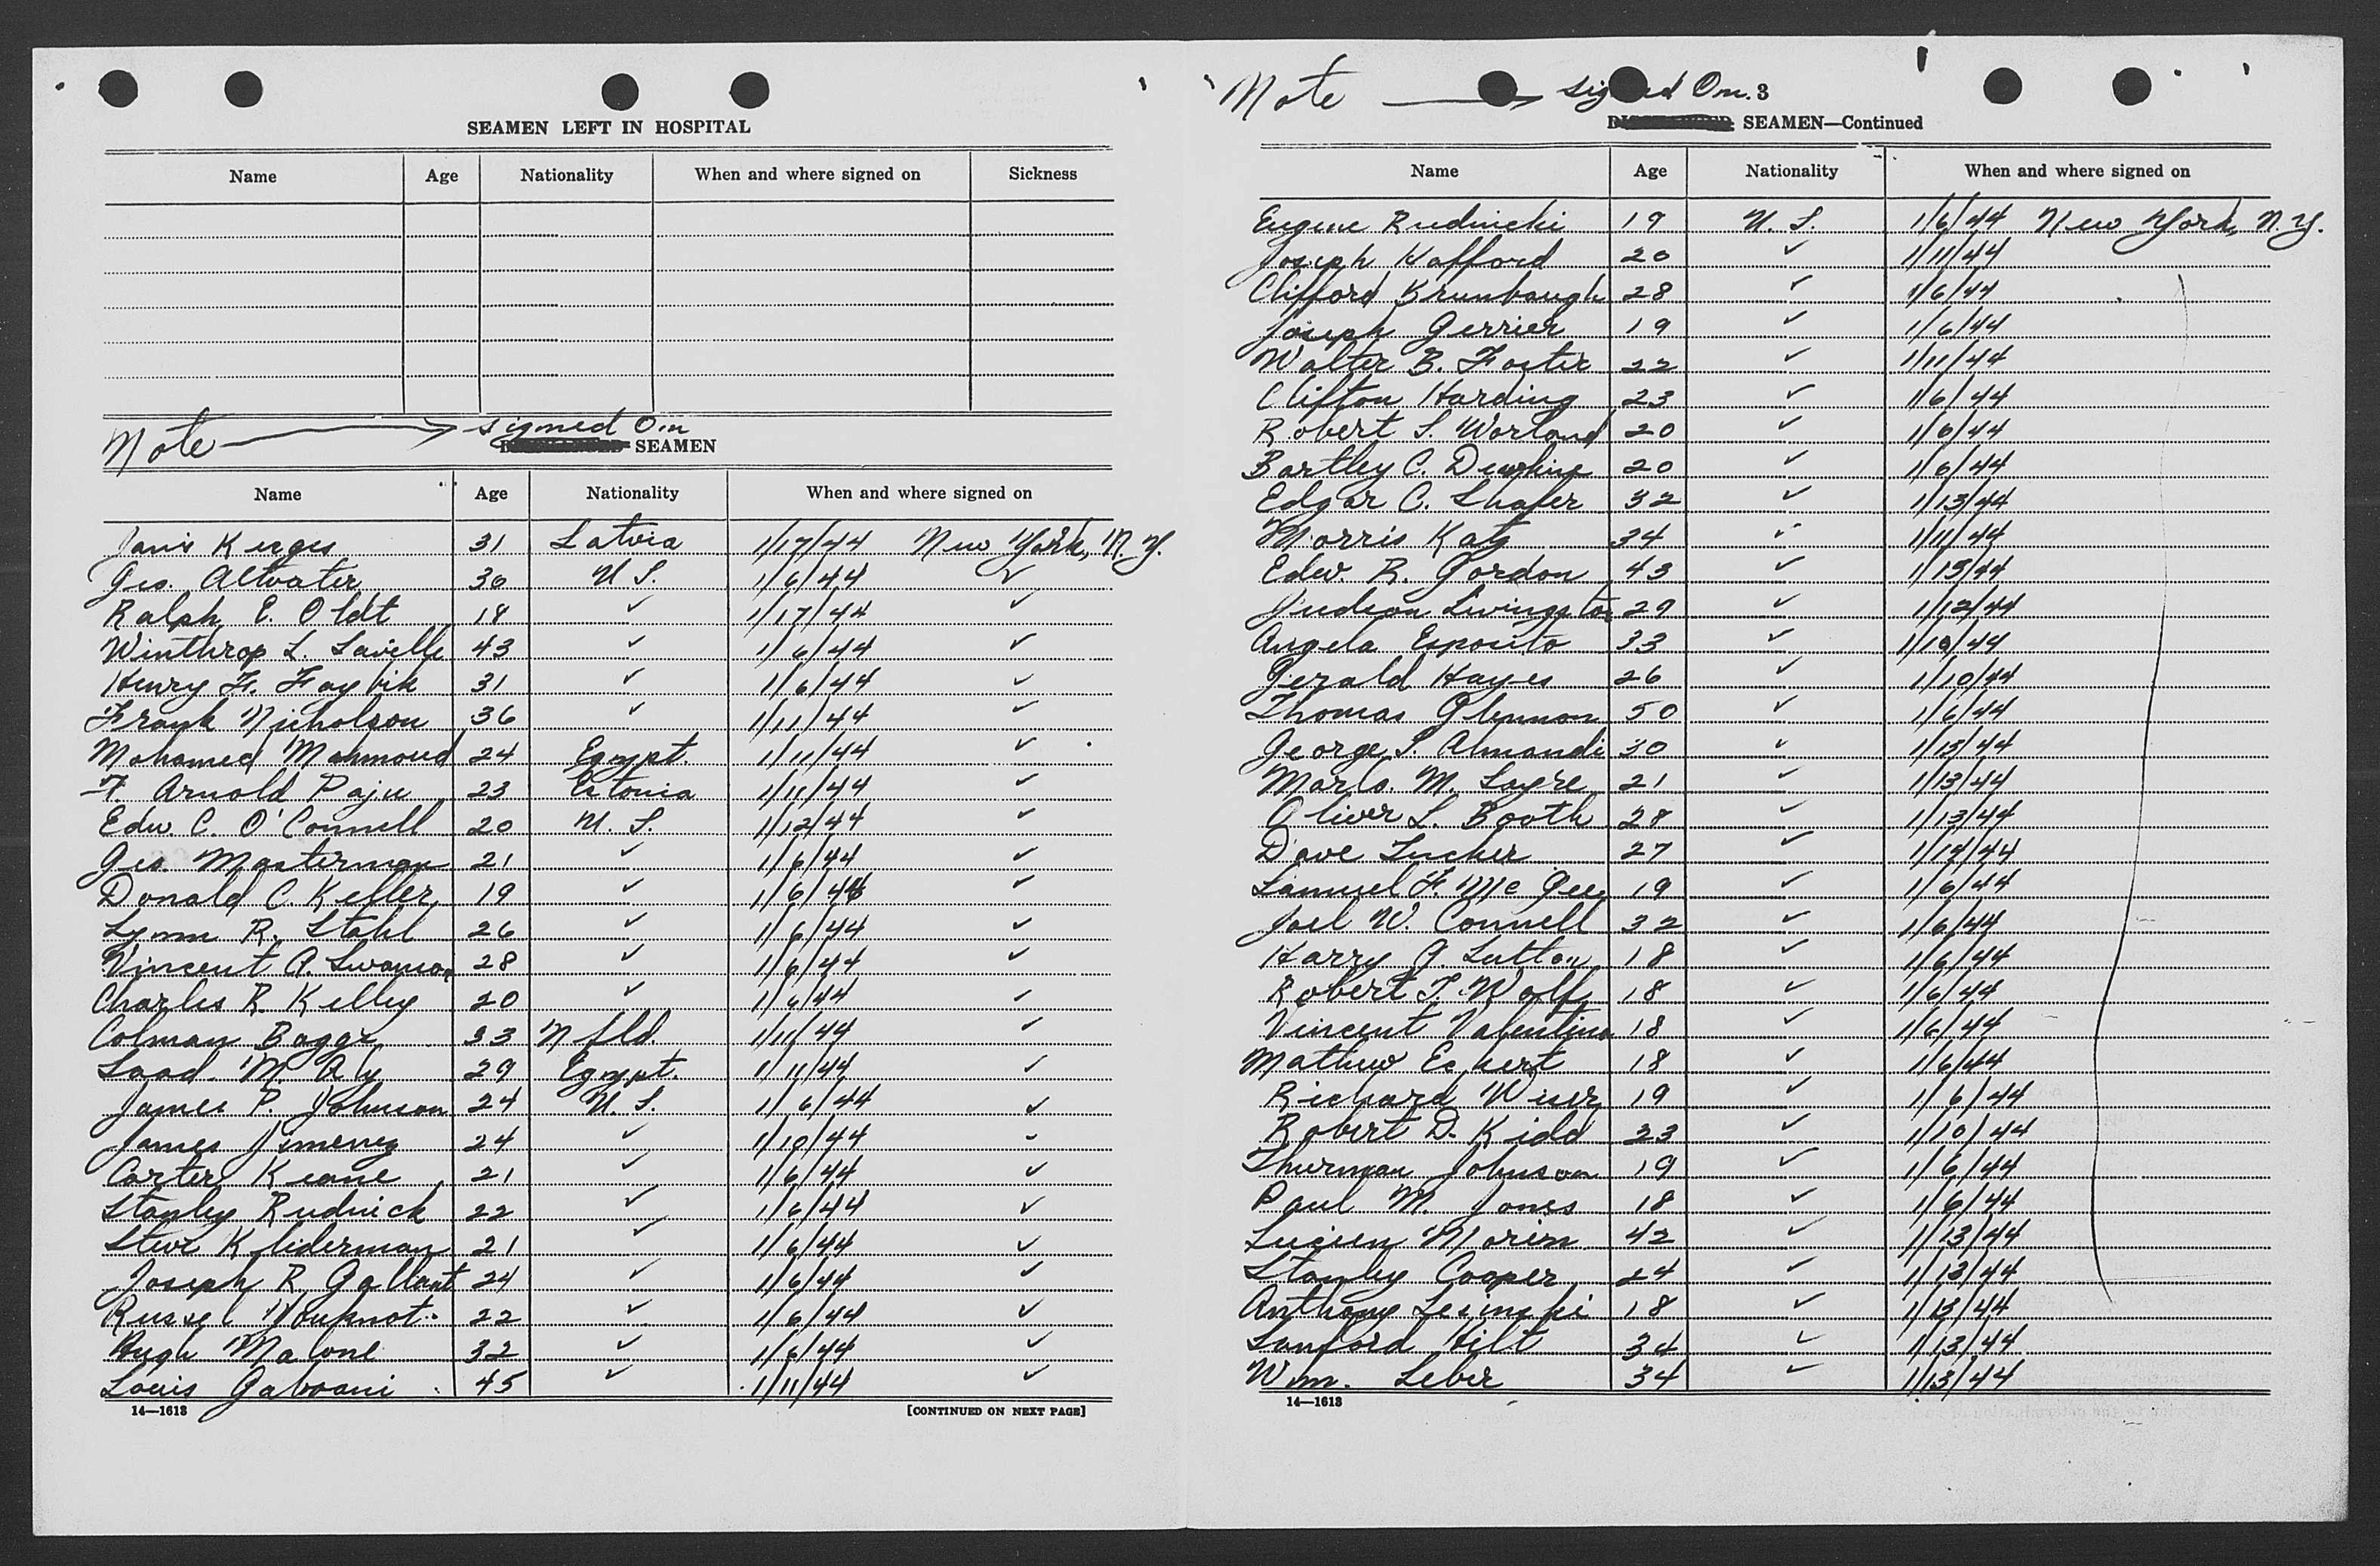 SEAMEN LEFT IN HOSPITAL
Name Age Nationality When and where signed on Sickness
Note signed On
SEAMEN
Name Age Nationality When and where signed on
Janis 31 Latvia 1/17/44 New York, N. Y.
Geo. Altvater 30 U S. 1/6/44 ✓
Ralph E. Oldt 18 ✓ 1/17/44 ✓
Winthrop L. Savelle 43 ✓ 1/6/44 ✓
Henry F. 31 ✓ 1/6/44 ✓
Frank Nicholson 36 ✓ 1/11/44 ✓
Mohamed Mahmoud 24 Egypt. 1/11/44 ✓
F Arnold Paju 23 Estonia 1/11/44 ✓
Edw. C. O'Connell 20 U. S. 1/12/44 ✓
Geo. Masterman 21 ✓ 1/6/44 ✓
Donald C. Keller 19 ✓ 1/6/44 ✓
Lynn R. Stahl 26 ✓ 1/6/44 ✓
Vincent A. Swanson 28 ✓ 1/6/44 ✓
Charles R. Kelley 20 ✓ 1/6/44 ✓
Colman Boggs 33 N fld. 1/11/44 ✓
Saad. M. Aly 29 Egypt. 1/11/44 ✓
James P. Johnson 24 U. S. 1/6/44 ✓
James Jimenez 24 ✓ 1/10/44 ✓
Carter Keane 21 ✓ 1/6/44 ✓
Stanley Rudnick 22 ✓ 1/6/44 ✓
Steve 21 ✓ 1/6/44 ✓
Joseph R. Gallant 24 ✓ 1/6/44 ✓
Russel 22 ✓ 1/6/44 ✓
Hugh Malone 32 ✓ 1/6/44 ✓
Louis Gaboani 45 ✓ 1/11/44 ✓
14—1613 [CONTINUED ON NEXT PAGE]
Note signed On. 3
SEAMEN—Continued
Name Age Nationality When and where signed on
Eugene Rudnicki 19 U. S. 1/6/44 New York, N. Y.
Joseph Hafford 20 ✓ 1/11/44
Clifford Krunbaugh 28 ✓ 1/6/44
Joseph Gerrier 19 ✓ 1/6/44
Walter B. Foster 22 ✓ 1/11/44
Clifton Harding 23 ✓ 1/6/44
Robert S. Worland 20 ✓ 1/6/44
Bartley C. 20 ✓ 1/6/44
Edgar C. Shafer 32 ✓ 1/13/44
Morris Katz 34 ✓ 1/11/44
Edw. R. Gordon 43 ✓ 1/13/44
Judson Livingston 29 ✓ 1/12/44
Angelo Esposito 33 ✓ 1/10/44
Gerald Hayes 26 ✓ 1/10/44
Thomas Glennon 50 ✓ 1/6/44
George S. Almandi 30 ✓ 1/13/44
Marlo. M. Sayre 21 ✓ 1/13/44
Oliver L. Booth 28 ✓ 1/13/44
Dave 27 ✓ 1/14/44
Samuel F. McGee 19 ✓ 1/6/44
Joel W. Connell 32 ✓ 1/6/44
Harry G. Sutton 18 ✓ 1/6/44
Robert T. Wolf 18 ✓ 1/6/44
Vincent Valentino 18 ✓ 1/6/44
Mathew Eckert 18 ✓ 1/6/44
Richard Wiser 19 ✓ 1/6/44
Robert D. Kidd 23 ✓ 1/10/44
Thurman Johnson 19 ✓ 1/6/44
Paul M. Jones 18 ✓ 1/6/44
Lucien Morin 42 ✓ 1/13/44
Stanley Cooper 24 ✓ 1/13/44
Anthony Lesinski 18 ✓ 1/13/44
Sanford Hilt 34 ✓ 1/13/44
Wm. Leber 34 ✓ 1/13/44
14—1613